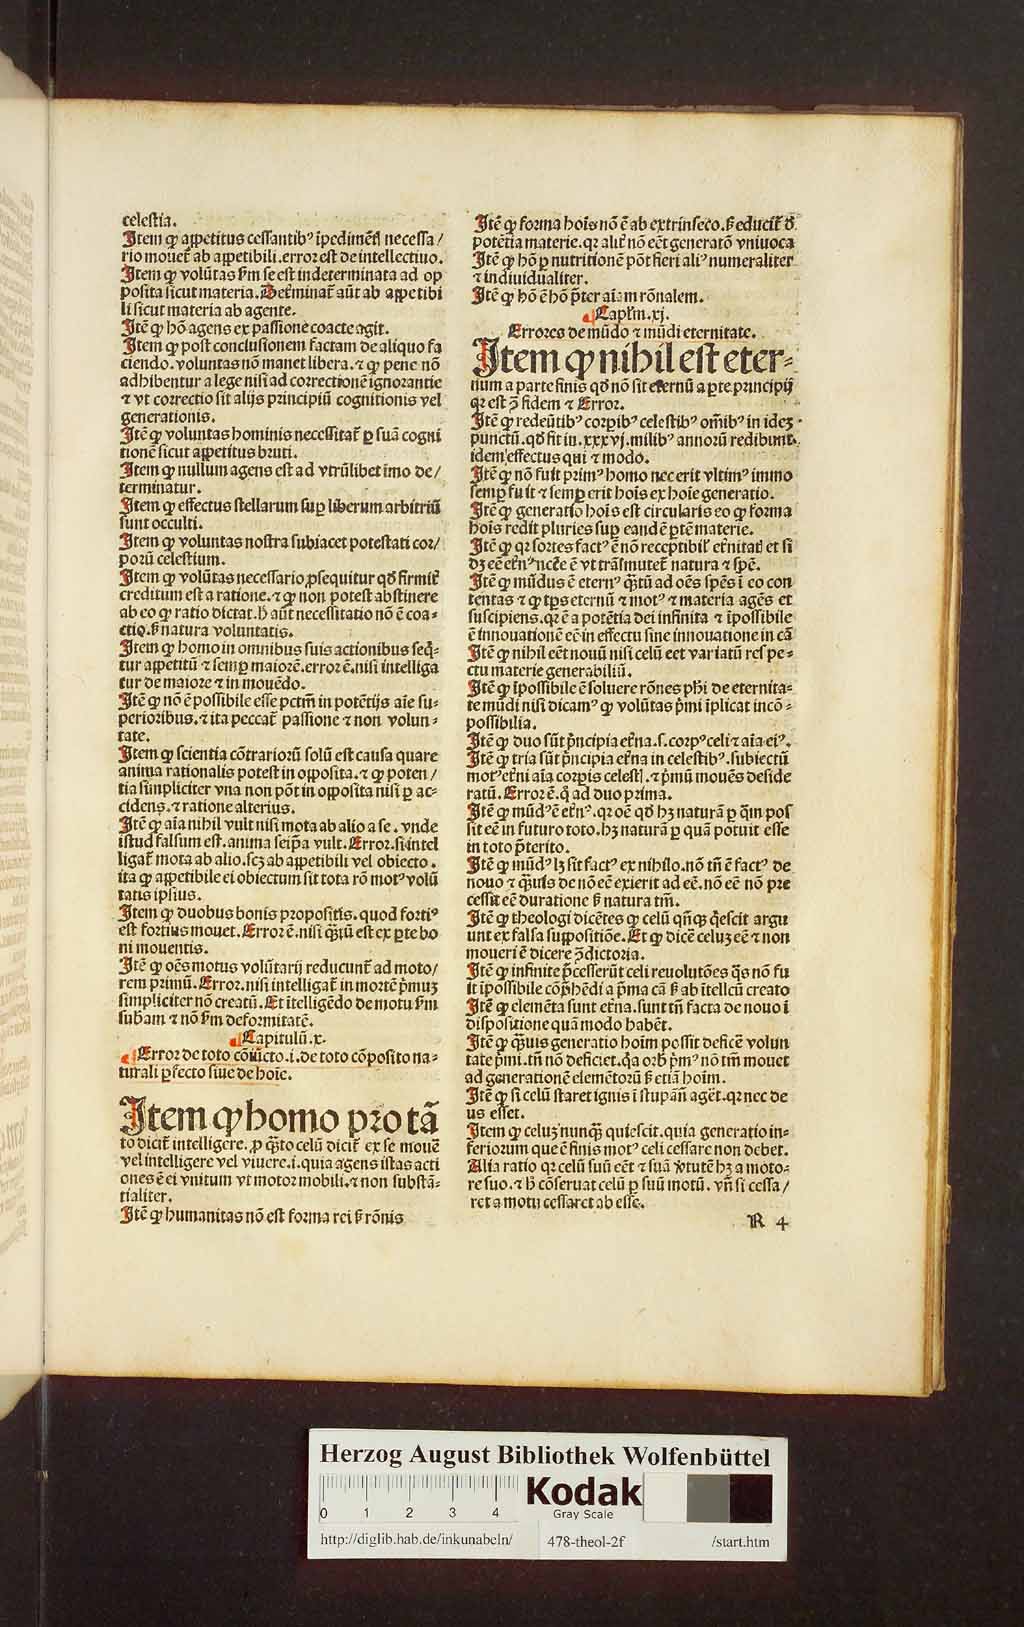 celestia.
Item ꝙ appetitus cessantibꝰ ĩpedimẽtꝭ necessa/
rio mouet᷑ ab appetibili.error est de intellectiuo.
Item ꝙ volũtas ẜm se est indeterminata ad op
posita sicut materia. Det᷑minat᷑ aũt ab appetibi
li sicut materia ab agente.
Itẽ ꝙ hõ agens ex passione coacte agit.
Itẽ ꝙ post conclusionem factam de aliquo fa
ciendo. voluntas nõ manet libera. ⁊ ꝙ pene nõ
adhibentur a lege nisi ad correctionẽ ignorantie
⁊ vt correctio sit alijs principiũ cognitionis vel
generationis.
Itẽ ꝙ voluntas hominis necessitat᷑ ꝑ suã cogni
tionẽ sicut appetitus bruti.
Itẽ ꝙ nullum agens est ad vtrũlibet ĩmo de/
terminatur.
Item ꝙ effectus stellarum suꝑ liberum arbitriũ
sunt occulti.
Item ꝙ voluntas nostra subiacet potestati cor/
porũ celestium.
Item ꝙ volũtas necessario ꝓsequitur qđ firmit᷑
creditum est a ratione.⁊ ꝙ non potest abstinere
ab eo ꝙ ratio dictat.ħ aũt necessitatio nõ ẽ coa-
ctio.ẞ natura voluntatis.
Item ꝙ homo in omnibus suis actionibus seq̃-
tur appetitũ ⁊ semꝑ maiorẽ.error ẽ.nisi intelliga
tur de maiore ⁊ in mouẽdo.
Itẽ ꝙ nõ ẽ possibile esse pctm̃ in potẽtijs aĩe su-
perioribus.⁊ ita peccat᷑ passione ⁊ non volun-
tate.
Itẽ ꝙ scientia cõtrariorũ solũ est causa quare
anima rationalis potest in opposita.⁊ ꝙ poten/
tia simpliciter vna non põt in opposita nisi ꝑ ac-
cidens.⁊ ratione alterius.
Itẽ ꝙ aĩa nihil vult nisi mota ab alio a se. vnde
istud falsum est.anima seip̃a vult.Error.si intel
ligat᷑ mota ab alio.scꝫ ab appetibili vel obiecto.
ita ꝙ appetibile ei obiectum sit tota rõ motꝰ volũ
tatis ipsius.
Item ꝙ duobus bonis propositis.quod fortiꝰ
est fortius mouet.Error ẽ.nisi q̃ꝫtũ est ex ꝑte bo
ni mouentis.
Itẽ ꝙ oẽs motus volũtarij reducunt᷑ ad moto/
rem primũ.Error.nisi intelligat᷑ in mortẽ p̃muꝫ
simpliciter nõ creatũ.Et ĩtelligẽdo de motu ẜm
subam ⁊ nõ ẜm deformitatẽ.
Capitulũ.x.
Error de toto cõiũcto.i.de toto cõposito na-
turali ꝑfecto siue de hoĩe.
Item ꝙ homo pro tã
to dicit᷑ intelligere.ꝓ q̃ꝫto celũ dicit᷑ ex se mouẽ
vel intelligere vel viuere.i.quia agens istas acti
ones ẽ ei vnitum vt motor mobili.⁊ non substã-
tialiter.
Itẽ ꝙ humanitas nõ est forma rei ẞ rõnis
Itẽ ꝙ forma hoĩs nõ ẽ ab extrinseco.ẞ educit᷑ đ
potẽtia materie.qꝛ alit᷑ nõ eẽt generatõ vniuoca
Itẽ ꝙ hõ ꝑ nutritionẽ põt fieri aliꝰ numeraliter
⁊ indiuidualiter.
Itẽ ꝙ hõ ẽ hõ p̃ter aĩam rõnalem.
Capl̃m.xj.
Errores de mũdo ⁊ mũdi eternitate.
Item ꝙ nihil est eter-
num a parte finis qđ nõ sit eternũ a ꝑte principij
qꝛ est ꝯ̃ fidem ⁊ Error.
Itẽ ꝙ redeũtibꝰ corꝑibꝰ celestibꝰ om̃ibꝰ in ideꝫ
punctũ.qđ fit in.xxxvj.milibꝰ annorũ redibunt.
idem effectus qui ⁊ modo.
Itẽ ꝙ nõ fuit primꝰ homo nec erit vltimꝰ immo
semꝑ fuit ⁊ semꝑ erit hoĩs ex hoĩe generatio.
Itẽ ꝙ generatio hoĩs est circularis eo ꝙ forma
hoĩs redit pluries suꝑ eandẽ ꝑtẽ materie.
Itẽ ꝙ qꝛ sortes factꝰ ẽ nõ receptibil᷑ et᷑nitat᷑ et si
dꝫ eẽ et᷑nꝰ ncc̃e ẽ vt trãsmutet᷑ natura ⁊ sp̃e.
Itẽ ꝙ mũdus ẽ eternꝰ q̃ꝫtũ ad oẽs sp̃es ĩ eo con
tentas ⁊ ꝙ tp̃s eternũ ⁊ motꝰ ⁊ materia agẽs et
suscipiens.qꝛ ẽ a potẽtia dei infinita ⁊ ĩpossibile
ẽ innouationẽ eẽ in effectu sine innouatione in cã
Itẽ ꝙ nihil eẽt nouũ nisi celũ eẽt variatũ respe-
ctu materie generabiliũ.
Itẽ ꝙ ĩpossibile ẽ soluere rõnes ph̃i de eternita-
te mũdi nisi dicamꝰ ꝙ volũtas p̃mi ĩplicat incõ-
possibilia.
Itẽ ꝙ duo sũt p̃ncipia et᷑na.s.corpꝰ celi ⁊ aĩa eiꝰ.
Itẽ ꝙ tria sũt p̃ncipia et᷑na in celestibꝰ.subiectũ
motꝰ et᷑ni aĩa corꝑis celesti.⁊ p̃mũ mouẽs deside
ratũ.Error ẽ.q̃ ad duo prima.
Itẽ ꝙ mũdꝰ ẽ et᷑nꝰ.qꝛ oẽ qđ hꝫ naturã ꝑ q̃m pos
sit eẽ in futuro toto.hꝫ naturã ꝑ quã potuit esse
in toto p̃terito.
Itẽ ꝙ mũdꝰ lꝫ sit factꝰ ex nihilo.nõ tñ ẽ factꝰ de
nouo ⁊ q̃uis de nõ eẽ exierit ad eẽ.nõ eẽ nõ pre
cessit eẽ duratione ẞ natura tm̃.
Itẽ ꝙ theologi dicẽtes ꝙ celũ qñꝙ q̃escit argu
unt ex falsa suppositiõe.Et ꝙ dicẽ celuꝫ eẽ ⁊ non
moueri ẽ dicere ꝯ̃dictoria.
Itẽ ꝙ infinite p̃cesserũt celi reuolutões q̃s nõ fu
it ĩpossibile cõp̃hẽdi a p̃ma cã ẞ ab ĩtellcũ creato
Itẽ ꝙ elemẽta sunt et᷑na.sunt tñ facta de nouo ĩ
dispositione quã modo habẽt.
Itẽ ꝙ q̃ꝫuis generatio hoĩm possit deficẽ volun
tate p̃mi.tñ nõ deficiet.q̃a orb᷑ p̃mꝰ nõ tm̃ mouet
ad generationẽ elemẽtorũ ẞ etiã hoĩm.
Itẽ ꝙ si celũ staret ignis ĩ stupã nõ aget.qꝛ nec de
us esset.
Item ꝙ celuꝫ nunq̃ quiescit.quia generatio in-
feriorum que ẽ finis motꝰ celi cessare non debet.
Alia ratio qꝛ celũ suũ eẽt ⁊ suã v̾tutẽ hꝫ a moto-
re suo.⁊ ħ cõseruat celũ ꝑ suũ motũ. vñ si cessa/
ret a motu cessaret ab esse.
R 4
Herzog August Bibliothek Wolfenbüttel
0 1 2 3 4
Kodak
Gray Scale
http://diglib.hab.de/inkunabeln/ 478-theol-2f /start.htm